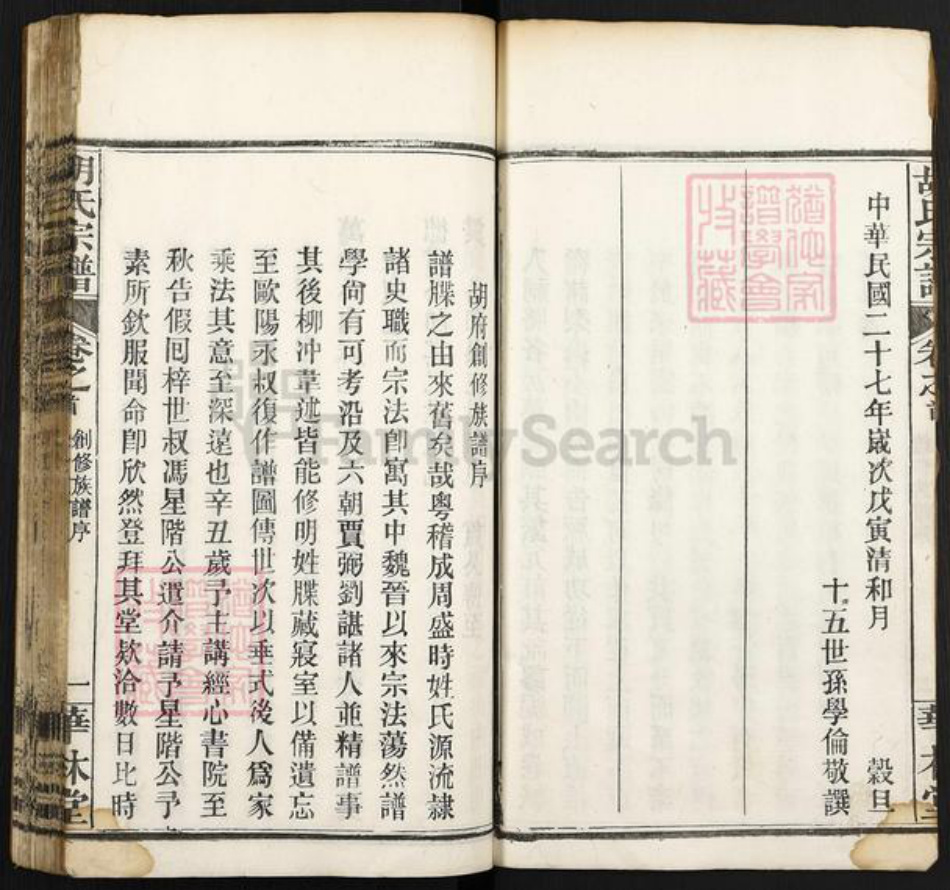 胡氏宗譜
卷之首
華林堂
中華民國二十七年嵗次戊寅清和月
穀旦
十五世孫學倫敬譔
胡府創修族譜序
譜牒之由來舊矣哉粵稽成周盛時姓氏源流隷
諸史職而宗法卽寓其中魏晉以來宗法蕩然譜
學尙有可考沿及六朝賈弼劉諶諸人並精譜事
其後柳冲韋述皆能修明姓牒藏寢室以備遺忘
至歐陽永叔復作譜圖傳世次以垂式後人爲家
乘法其意至深遠也辛丑歲予主講經心書院至
秋告假囘梓世叔馮星階公遣介請予星階公予
素所欽服聞命卽欣然登拜其堂欵洽數日比時
胡氏宗譜
卷之首
創修族譜序
一
華林堂
猶他家
譜學會
收藏
猶他家
譜學會
收藏
FamilySearch